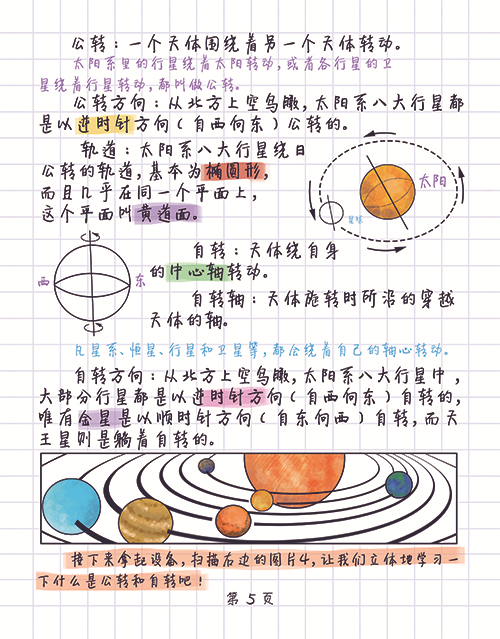 公转：一个天体围绕着另一个天体转动。
太阳系里的行星绕着太阳转动，或者各行星的卫
星绕着行星转动，都叫做公转。
公转方向：从北方上空鸟瞰，太阳系八大行星都
是以逆时针方向（自西向东）公转的。
轨道：太阳系八大行星绕日
公转的轨道，基本为椭圆形，
而且几乎在同一个平面上，
这个平面叫黄道面。
太阳
星球
西
东
自转：天体绕自身
的中心轴转动。
自转轴：天体旋转时所沿的穿越
天体的轴。
凡星系、恒星、行星和卫星等，都会绕着自己的轴心转动。
自转方向：从北方上空鸟瞰，太阳系八大行星中，
大部分行星都是以逆时针方向（自西向东）自转的，
唯有金星是以顺时针方向（自东向西）自转，而天
王星则是躺着自转的。
接下来拿起设备，扫描右边的图片4，让我们立体地学习一
下什么是公转和自转吧！
第5页